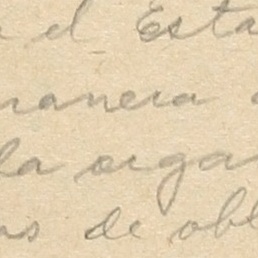 el Esta
manera
la orga
as de obl